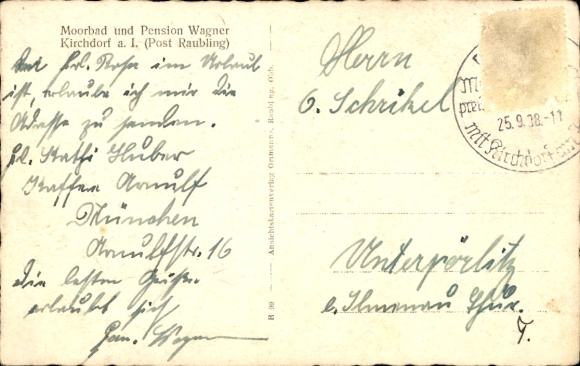 Moorbad und Pension Wagner
Kirchdorf a. I. (Post Raubling)
Da Frl. Rosa im Urlaub
ist, erlaube ich mir die
Adresse zu senden.
Frl. Kathi Huber
Kaffee Arnulf
München
Arnulfstr. 16
die besten Grüße
erlaubt sich
Fam. Wagner
R 39 — Ansichtskartenverlag Raubling, Obb.
Herrn
O. Schrikel
Unterpörlitz
b. Ilmenau Thür.
25.9.38.-11
mit Kirchdorf